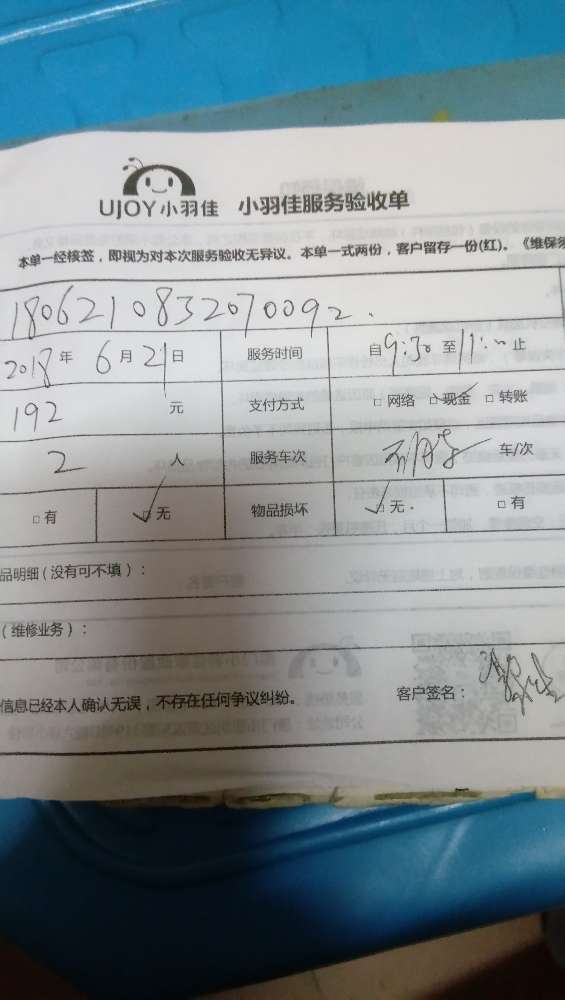 UJOY小羽佳 小羽佳服务验收单
本单一经核签，即视为对本次服务验收无异议。本单一式两份，客户留存一份(红)。《维保须
1806210832070092.
2018年6月21日 服务时间 自9:30至11:00止
192元 支付方式 □网络 □现金 □转账
2人 服务车次 车/次
□有 □无 物品损坏 □无. □有
品明细（没有可不填）：
（维修业务）：
信息已经本人确认无误，不存在任何争议纠纷。 客户签名：